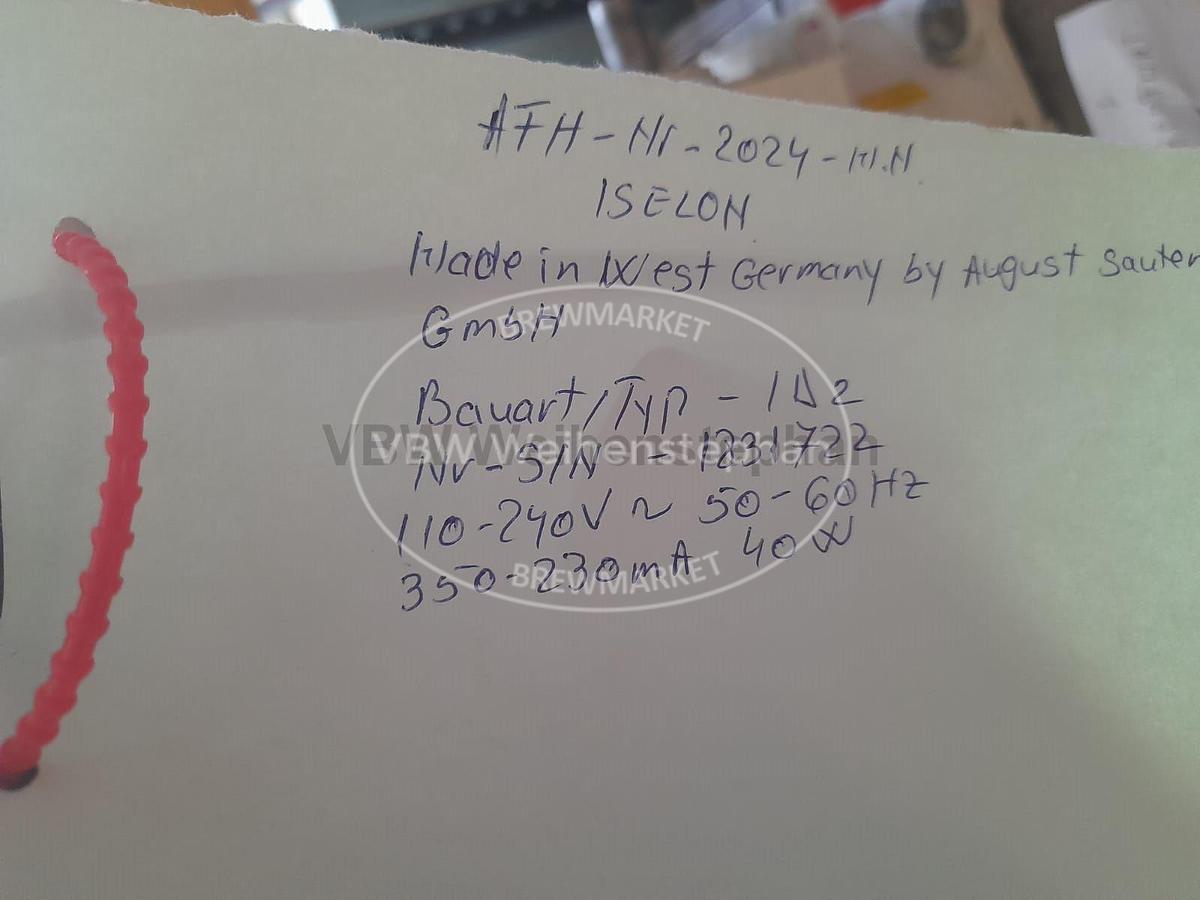 AFH-NI-2024-M.N
ISELON
Made in West Germany by August Sauter
GmbH
BREWMARKET
Bauart/Typ - 1D2
VBW Weihenstephan
VBW Weihenstephan
Nr-S/N - 1231722
110-240V ~ 50-60Hz
350-230mA 40W
BREWMARKET